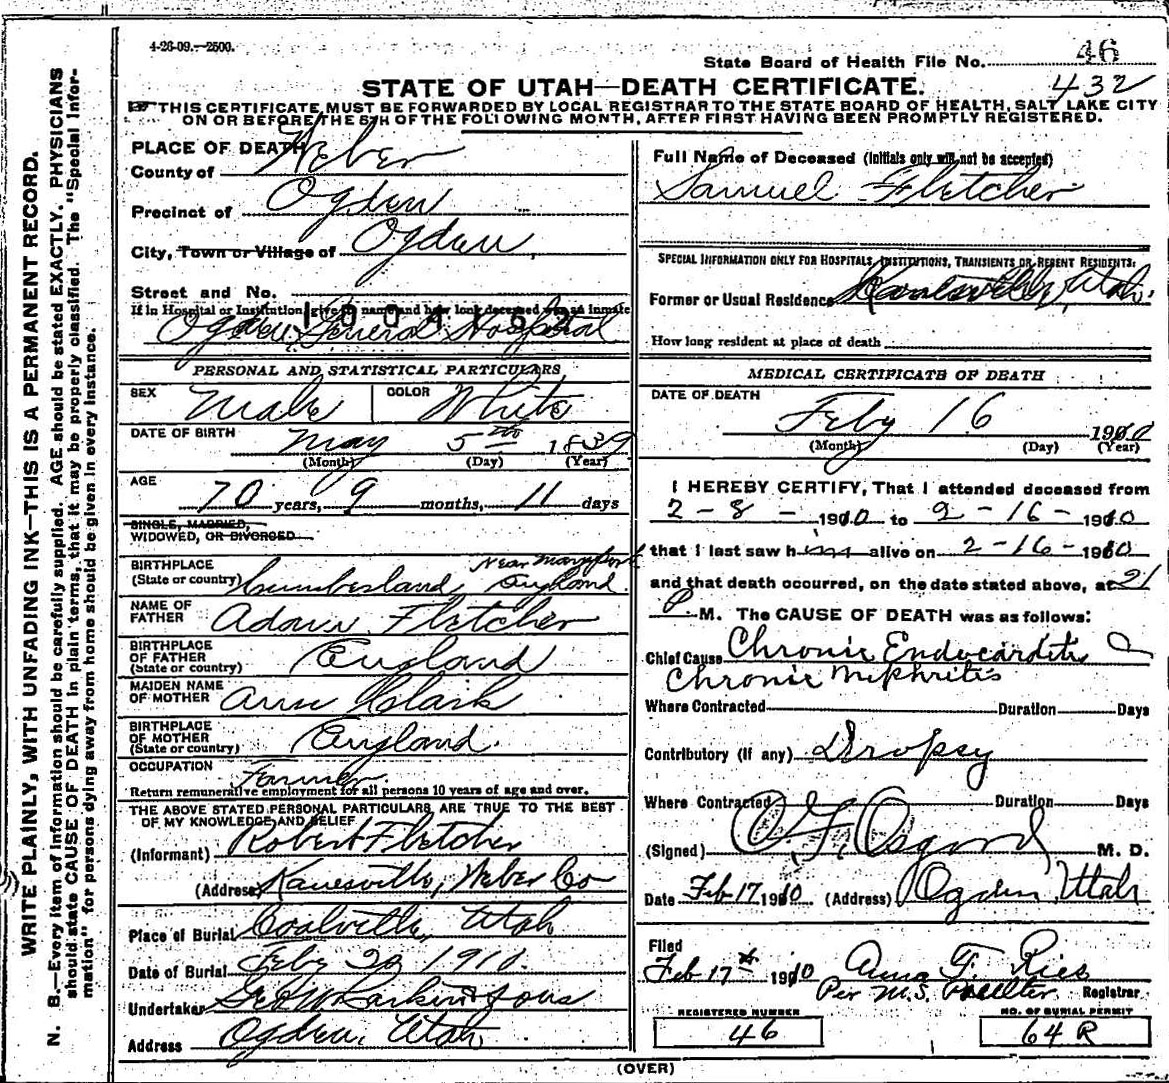 4-26-09.—2500.
State Board of Health File No. 46
432
STATE OF UTAH—DEATH CERTIFICATE.
THIS CERTIFICATE MUST BE FORWARDED BY LOCAL REGISTRAR TO THE STATE BOARD OF HEALTH, SALT LAKE CITY
ON OR BEFORE THE 5TH OF THE FOLLOWING MONTH, AFTER FIRST HAVING BEEN PROMPTLY REGISTERED.
WRITE PLAINLY, WITH UNFADING INK—THIS IS A PERMANENT RECORD.
N. B.—Every item of information should be carefully supplied. AGE should be stated EXACTLY. PHYSICIANS
should state CAUSE OF DEATH in plain terms, that it may be properly classified. The "Special Infor-
mation" for persons dying away from home should be given in every instance.
PLACE OF DEATH
County of Weber
Precinct of Ogden
City, Town or Village of Ogden,
Street and No.
If in Hospital or Institution, give its name and how long deceased was an inmate
Ogden General Hospital
PERSONAL AND STATISTICAL PARTICULARS
SEX Male COLOR White
DATE OF BIRTH May 5th 1839
(Month) (Day) (Year)
AGE 70 years, 9 months, 11 days
SINGLE, MARRIED,
WIDOWED, OR DIVORCED
BIRTHPLACE Near Maryport
(State or country) Cumberland, England
NAME OF
FATHER Adam Fletcher
BIRTHPLACE
OF FATHER England
(State or country)
MAIDEN NAME
OF MOTHER Ann Clark
BIRTHPLACE
OF MOTHER England.
(State or country)
OCCUPATION Farmer
Return remunerative employment for all persons 10 years of age and over.
THE ABOVE STATED PERSONAL PARTICULARS ARE TRUE TO THE BEST
OF MY KNOWLEDGE AND BELIEF
(Informant) Robert Fletcher
(Address) Kanesville, Weber Co
Place of Burial Coalville, Utah
Date of Burial Feby 20 1910.
Undertaker Geo W Larkin & Sons
Address Ogden, Utah
Full Name of Deceased (Initials only will not be accepted)
Samuel Fletcher
SPECIAL INFORMATION ONLY FOR HOSPITALS, INSTITUTIONS, TRANSIENTS OR RECENT RESIDENTS:
Former or Usual Residence Utah.
How long resident at place of death
MEDICAL CERTIFICATE OF DEATH
DATE OF DEATH
Feby 16 1910
(Month) (Day) (Year)
I HEREBY CERTIFY, That I attended deceased from
2-8- 1910 to 2-16- 1910
that I last saw him alive on 2-16- 1910
and that death occurred, on the date stated above, at 21
P M. The CAUSE OF DEATH was as follows:
Chief Cause Chronic Endocarditis
Chronic Nephritis
Where Contracted Duration Days
Contributory (If any) Dropsy
Where Contracted Duration Days
(Signed) Osgood M. D.
Date Feb 17 1910 (Address) Ogden, Utah
Filed
Feb 17th 1910 Anna F. Ries
Per M.S. Registrar
REGISTERED NUMBER
46
NO. OF BURIAL PERMIT
64 R
(OVER)